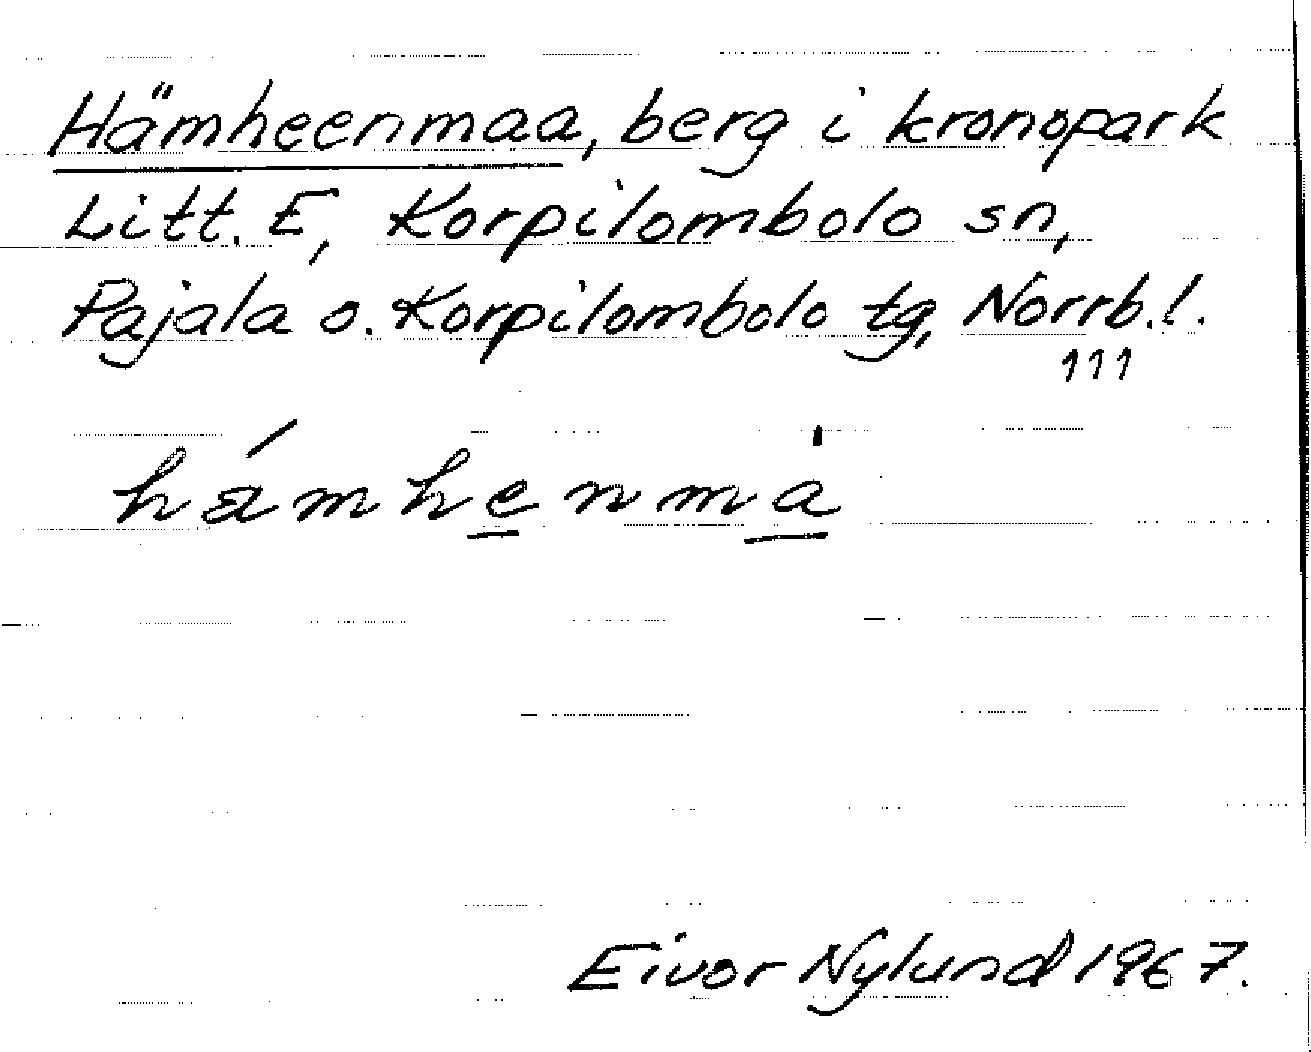 Hämheenmaa, berg i kronopark
Litt. E, Korpilombolo sn,
Pajala o. Korpilombolo tg, Norrb. l.
111
hámhenmà
Eivor Nylund 1967.